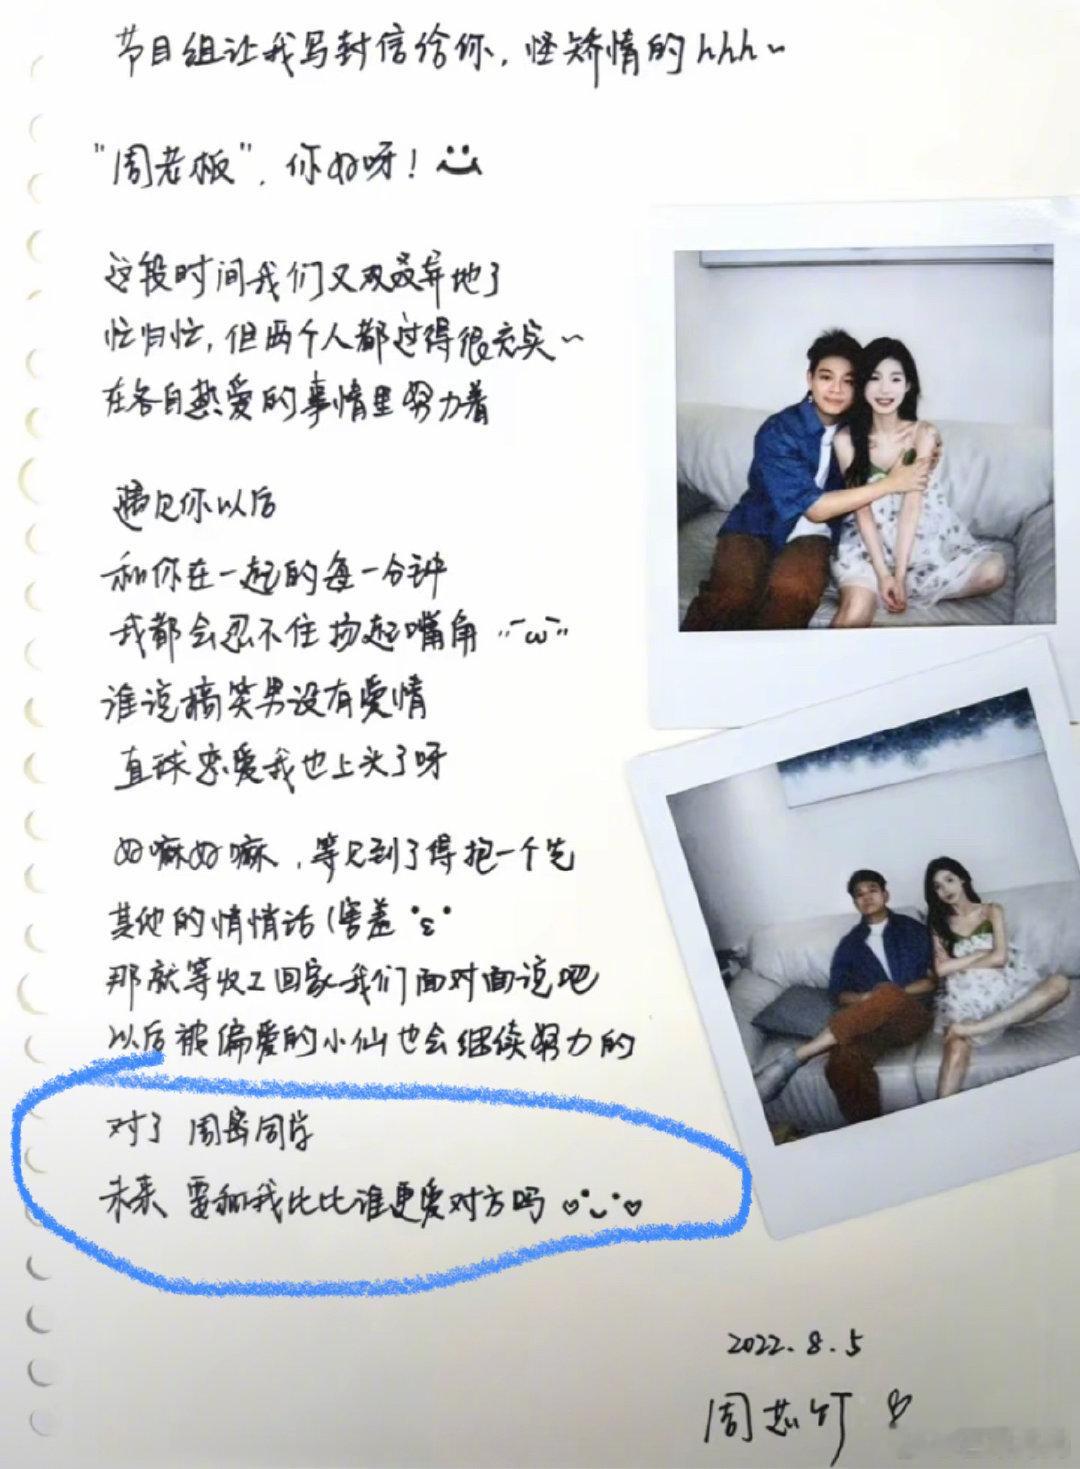 节目组让我写封信给你，怪矫情的hhh~
"周老板"，你好呀！
这段时间我们又双叒异地了
忙归忙，但两个人都过得很充实~
在各自热爱的事情里努力着
遇见你以后
和你在一起的每一分钟
我都会忍不住扬起嘴角
谁说搞笑男没有爱情
直球恋爱我也上头了呀
好嘛好嘛，等见到了得抱一个先
其他的悄悄话(害羞
那就等收工回家我们面对面说吧
以后被偏爱的小仙也会继续努力的
对了 周岳同学
未来 要和我比比谁更爱对方吗
2022.8.5
周芯竹